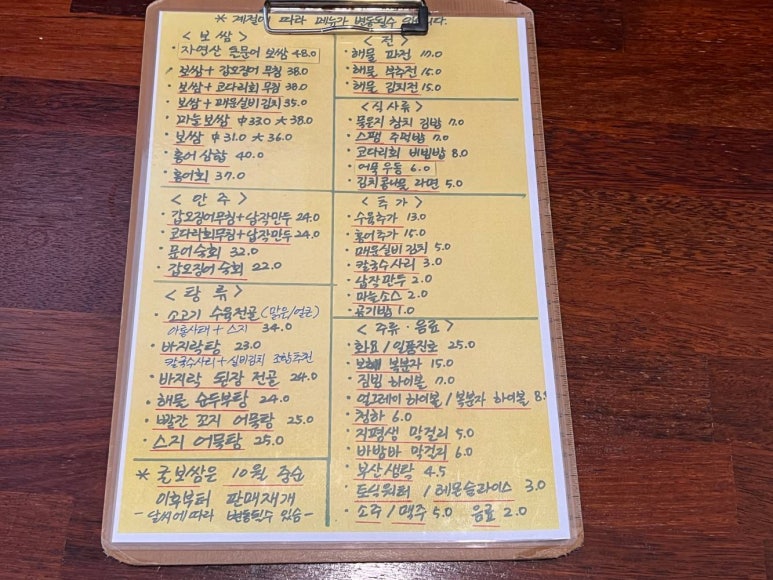 * 계절에 따라 메뉴가 변동될수 있습니다.
< 보쌈 >
· 자연산 돌문어 보쌈 48.0
· 보쌈 + 갑오징어 무침 38.0
· 보쌈 + 코다리회 무침 38.0
· 보쌈 + 매운실비김치 35.0
· 마늘보쌈 中 33.0 大 38.0
· 보쌈 中 31.0 大 36.0
· 홍어 삼합 40.0
· 홍어회 37.0
< 안주 >
· 갑오징어무침 + 납작만두 24.0
· 코다리회무침 + 납작만두 24.0
· 문어숙회 32.0
· 갑오징어 숙회 22.0
< 탕류 >
· 소고기 수육전골 (맑은/얼큰)
아롱사태 + 스지 34.0
· 바지락탕 23.0
칼국수사리 + 실비김치 조합추천
· 바지락 된장 전골 24.0
· 해물 순두부탕 24.0
· 빨간 꼬지 어묵탕 25.0
· 스지 어묵탕 25.0
* 굴보쌈은 10월 중순
이후부터 판매재개
- 날씨에 따라 변동될수 있음 -
< 전 >
· 해물 파전 17.0
· 해물 부추전 15.0
· 해물 김치전 15.0
< 식사류 >
· 묵은지 참치 김밥 7.0
· 스팸 주먹밥 7.0
· 코다리회 비빔밥 8.0
· 어묵우동 6.0
· 김치콩나물 라면 5.0
< 추가 >
· 수육추가 13.0
· 홍어추가 15.0
· 매운실비 김치 5.0
· 칼국수사리 3.0
· 납작만두 2.0
· 마늘소스 2.0
· 공기밥 1.0
< 주류 · 음료 >
· 화요 / 일품진로 25.0
· 보해 복분자 15.0
· 짐빔 하이볼 7.0
· 얼그레이 하이볼 / 복분자 하이볼 8.
· 청하 6.0
· 지평생 막걸리 5.0
· 바밤바 막걸리 6.0
· 부산생탁 4.5
· 토닉워터 / 레몬슬라이스 3.0
· 소주 / 맥주 5.0 음료 2.0